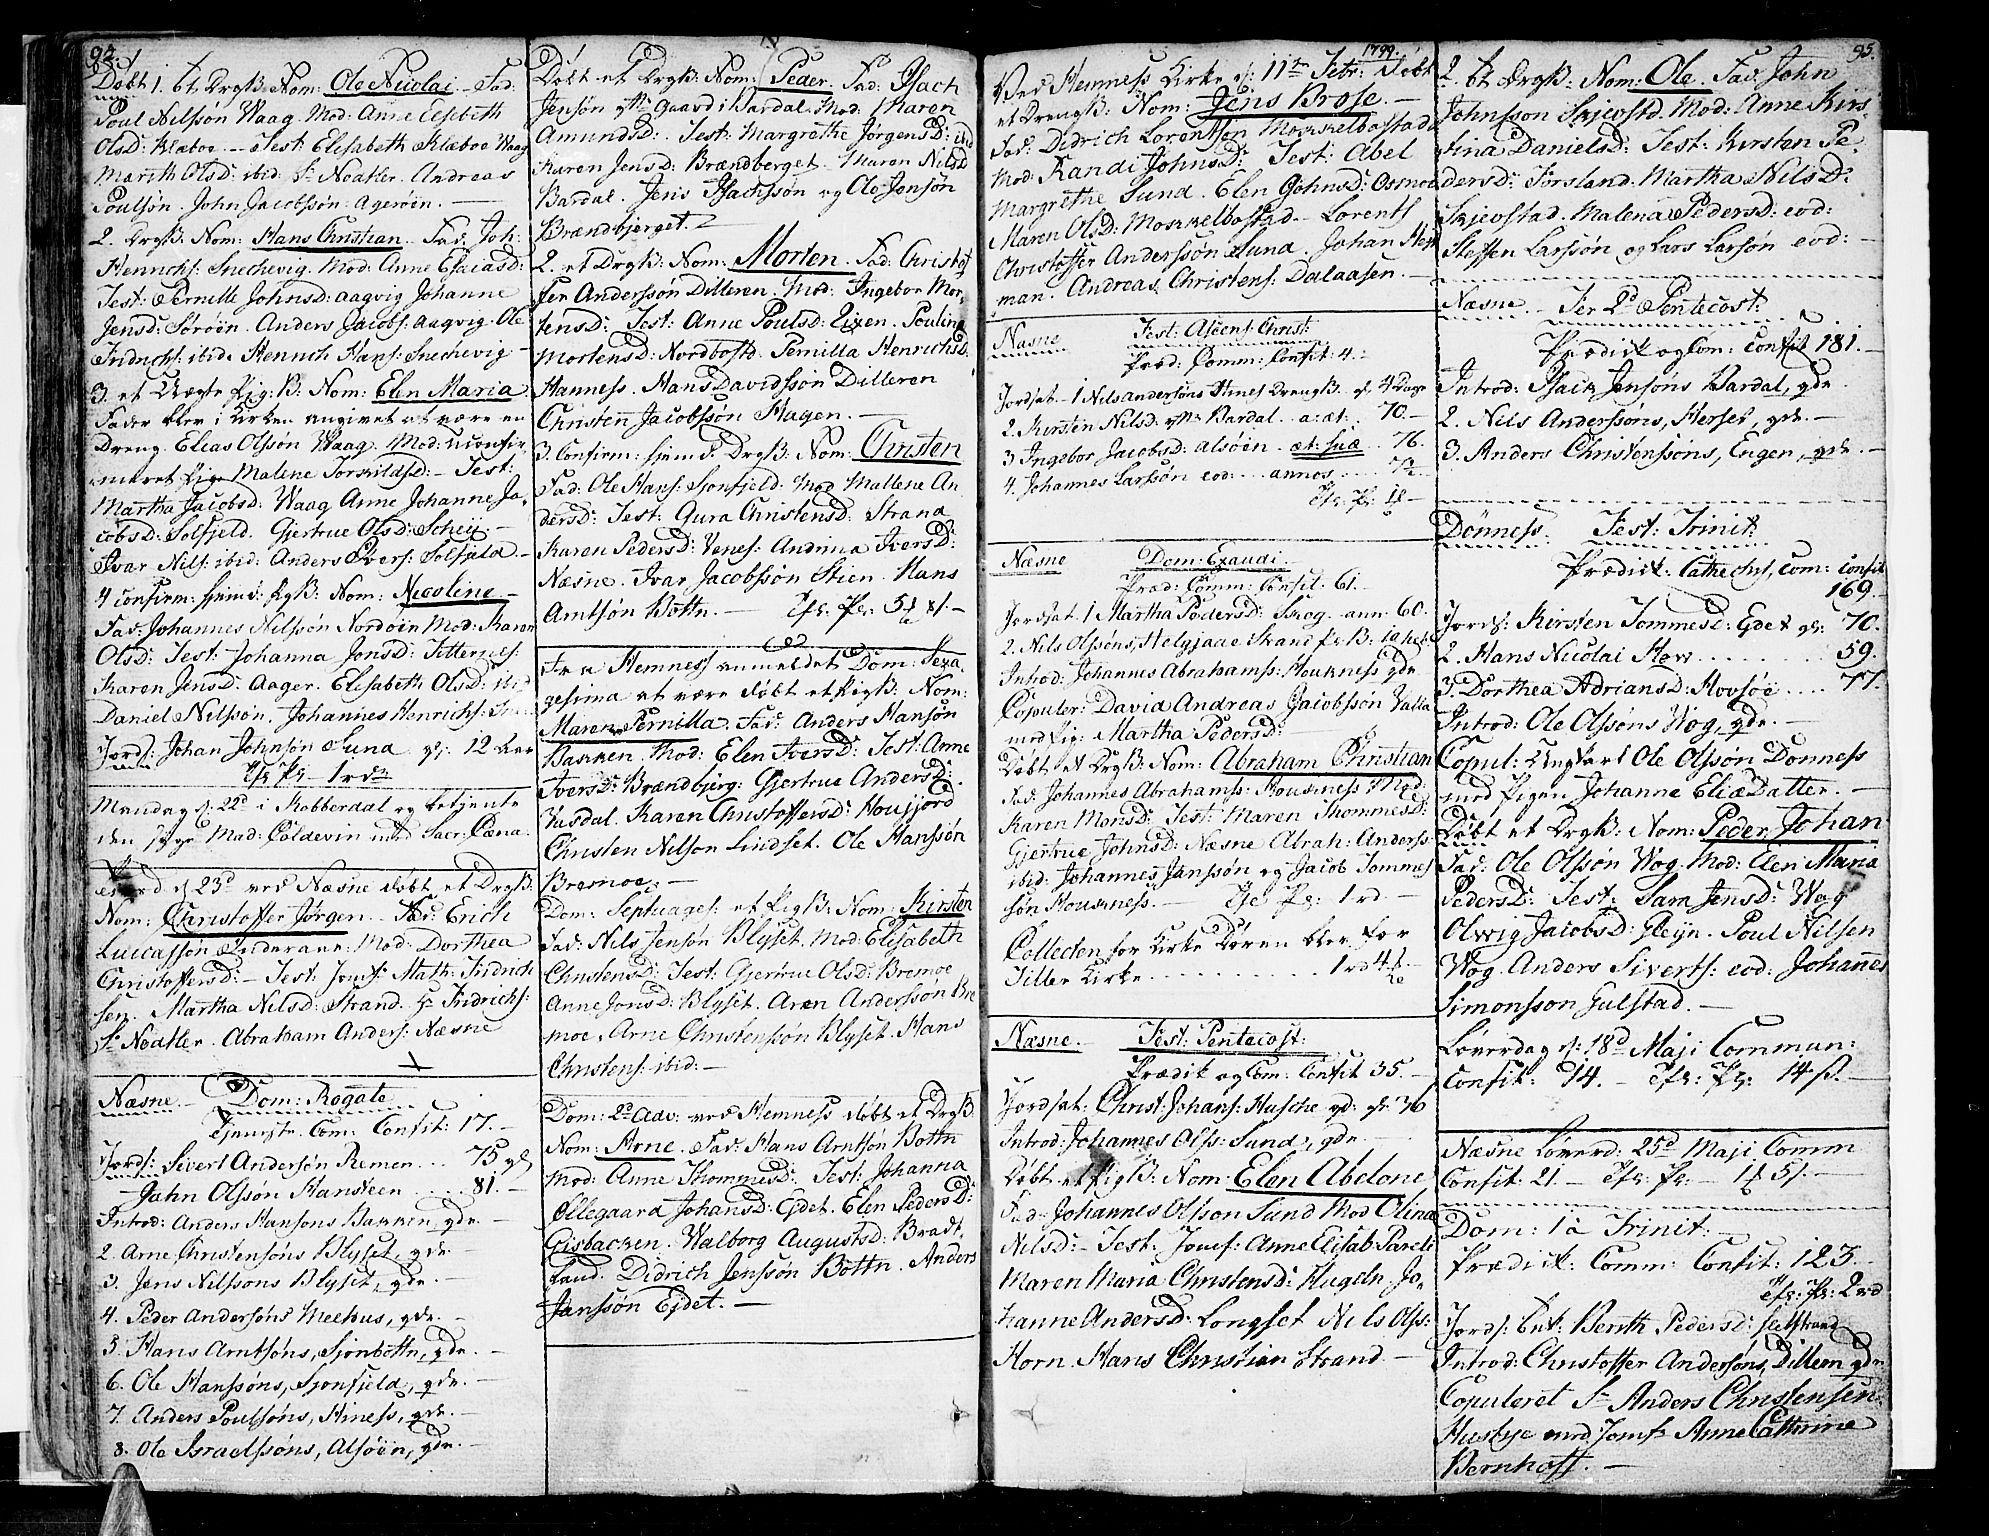 94.
Døbt 1. et Drgß: Nom: Ole Nicolai. Fad:
Poul Nilssøn Waag. Mod: Anne Elsebeth
Olsd: Klæboe. - Test: Elisabeth Klæboe Waag
Marith Olsd: ibid: Sr Noatler. Andreas
Poulsøn. John Jacobssøn Agerøen. -
2. Drgß. Nom: Hans Christian. Fad: Joh:
Henrichs: Snechevig. Mod: Anne Esaiasd:
Test: Pernille Johnsd: Aagvig Johanne
Jensd: Sørøen. Anders Jacobs: Aagvig. Ole
Fridrichs: ibid. Henrich Hans: Snechevig -
3. et Uægte Pig: B: Nom: Elen Maria
Fader blev i Kirken angivet at være en
Dreng Elias Olsøn Waag. Mod: uconfir-
meret Pige Malene Torkildsd: - Test:
Martha Jacobsd: Waag Anne Johanne Ja-
cobsd: Solfjeld. Gjertrue Olsd: Schej. -
Ivar Nils: ibid: Anders Ivers: Solfjeld. -
4 confirm: hjemd: Pgß: Nom: Nicoline -
Fad: Johannes Nilssøn Nordøen Mod: Karen
Olsd: Test: Johanna Jonsd: Titternes:
Karen Jensd: Aager. Elisabeth Olsd: ibid
Daniel Nilssøn. Johannes Henrichs:
Jords: Johan Johnsøn Sund gl: 12 Uer
Efr: Pr: - 1 rdr
Mandag d: 22d i Kobberdal og betjente
den syge Mad: Coldevin med Sacr: Cæna.
d 23d ved Næsne døbt et Drgß:
Nom: Christoffer Jørgen. Fad: Erich
Luccassøn Mod: Dorthea
Christoffersd: - Test: Jomf: Math: Fridrich
sen. Martha Nilsd: Strand. Hr Fridrichs:
Sr Noatler. Abraham Anders: Næsne
Næsne. Dom: Rogate
Tjeneste. Com: Confit: 17. -
Jords: Sivert Andersøn Remen ... 75 gl
John Olssøn Hansteen ... 81. -
Introd: Anders Hansøns Bakken, gde. -
2. Arne Christensøns Blyset, gde. -
3. Jens Nilssøns Blyset, gde. -
4. Peder Andersøns Meehus, gde. -
5. Hans Arntsøns, Sjonbottn, gde. -
6. Ole Hanssøns, Sjonfjeld, gde. -
7. Anders Poulssøns, Hiness, gde. -
8. Ole Israelssøns, Alsøen, gde. -
Døbt et Drgß: Nom: Peder. Fad: Isach
Jensøn Gaard i Bardal. Mod: Maren
Amundsd: Test: Margrethe Jørgensd: ibid
Karen Jensd: Brændberget. Maren Nilsd
Bardal. Jens Isachssøn og Ole Jensøn
Brændbjerget.
2. et Drgß: Nom: Morten. Fad: Christof
fer Anderssøn Dilleren. Mod: Ingebor Mor-
tensd: Test: Anne Poulsd: Eixen. Pouline
Mortensd: Nordbostd. Pernilla Henrichsd:
Hanness. Hans Davidssøn Dilleren
Christen Jacobssøn Hagen. -
3. Confirm: hjemd: Drgß: Nom: Christen
Fad: Ole Hans: Sjonfjeld. Mod Mallene An
dersd: Test: Gura Christensd: Strand
Karen Pedersd: Venes: Andrina Iversd:
Næsne. Ivar Jacobssøn Stien. Hans
Arntsøn Bottn. - Efr: Pr: 5
Fra Hemness anmeldet Dom: Sexa
gesima at være døbt et Pigß: Nom:
Maren Pernilla. Fad: Anders Hansøn
Bakken. Mod: Elen Iversd: Test: Anne
Iversd: Brændbjerg: Gjertrue Andersd:
Vasdal. Karen Christoffersd: Housjord
Christen Nilson Lindset. Ole Hanssøn
Bremoe. -
Dom: Septuages: et Pigß: Nom: Kirsten
Fad: Nils Jensøn Blyset. Mod: Elisabeth
Christensd: Test: Gjertrue Olsd: Bremoe
Anne Jonsd: Blyset. Aren Anderssøn Bre
moe. Arne Christenssøn Blyset. Hans
Christens: ibid: -
Dom: 2d Adv: ved Hemness døbt et Drgß
Nom: Arne. Fad: Hans Arntsøn Bottn
Mod: Anne Thommesd: Test: Johanna
Ollegaard Johansd: Ejdet. Elen Pedersd:
Gisbacken. Walborg Augustsd: Bradt-
land. Didrich Jenssøn Bottn. Anders
Janssøn Ejdet. -
1799.
Ved Hemness Kirke d: 11te Febr: døbt
et Drengß: Nom: Jens Brose. -
Fad: Didrich Lorentssøn Mokkelbostad
Mod: Randi Johnsd: Test: Abel
Margrethe Sund. Elen Gjohnsd: Osmoe
Maren Olsd: Mokkelbostad. Lorents
Christoffer Anderssøn Sund. Johan
man. Andreas Christens: Dalaasen. -
Næsne Fest: Ascens: Christ:
Præd: Comm: Confit: 4. -
Jordsat. 1 Nils Andersøns Hines Drengß. gl 4 Dage
2. Kirsten Nilsd: Bardal. æt: 70. -
3 Ingebor Jacobsd: Alsøen. æt: suæ .. 76.
4. Johannes Larssøn eod: ... annos ... 72
Efr: Pr: 18
Næsne Dom: Exaudi
Præd: Comm: Confit: 61.
Jordsat. 1 Martha Pedersd: Skog. ann: 60.
2. Nils Olssøns, Helgjaae Strand Pr B:
Introd: Johannes Abrahamss: Houkness gde
Copuler: David Andreas Jacobssøn Valla
med Pig: Martha Pedersd:
Døbt et Drgß: Nom: Abraham Christian
Fad: Johannes Abrahamss: Houkness Mod:
Karen Monsd: Test: Maren Thommesd:
Gjertrue Johnsd: Næsne Abrah: Anderss:
ibid: Johannes Janssøn og Jacob Tommes
søn Houkness. - Efr: Pr: 1 rd. -
Collecten for Kirke Døren blev før
Tiller Kirke ... 1 rd 4
Næsne. Fest: Pentecost:
Prædik og Com: Confit 35. -
Jordsat: Christ: Johans: Husche gd: gl 36
Introd: Johannes Olss: Sund, gde.
Døbt et Pigß: Nom: Elen Abelone
Fad: Johannes Olssøn Sund Mod Olina
Nilsd: - Test: Jomf: Anne Elisab: Pareli
Maren Maria Christensd: Hugeln. Jo-
hanne Andersd: Longset Nils Olss:
Horn. Hans Christian Strand. -
95.
2. et Drgß: Nom: Ole. Fad: John
Johnssøn Skjevstd Mod: Anne Kirs-
tina Danielsd: Test: Kirsten Pe-
dersd: Forsland. Martha Nilsd:
Skjevstad. Malena Pedersd: eod:
Steffen Larssøn og Lars Larsøn eod: -
Næsne Fer 2d Pentecost:
Prædik og Com: Confit 181. -
Introd: Isach Jensøns Bardal, gde
2. Nils Anderssøns, Herset, gde. -
3. Anders Christenssøns, Engen, gde. -
Dønness. Fest: Trinit:
Prædik: Cathechis, Com: Confit
169.
Jords: Kirsten Tommesd: Ejdet gl: 70.
2. Hans Nicolai How ... 59.
3. Dorthea Adriansd: Hovsøe .... 77.
Introd: Ole Olssøns Wog, gde. -
Copul: Ungkarl Ole Olssøn Dønness
med Pigen Johanne Eliæ Datter. -
Døbt et Drgß: Nom: Peder Johan
Fad: Ole Olssøn Wog. Mod: Elen Maria
Pedersd: Test: Sara Jensd: Wog
Olwig Jacobsd: Glejn. Poul Nilsen
Wog. Anders Siverts: eod: Johannes
Simonsson Gulstad. -
Løverdag d: 18d Maji Commun:
Confit: 74. - Efr: Pr: 14 ß. -
Næsne Løverd: 25d Maji Comm
Confit: 21. - Efr: Pr: - 1
Dom: 1 a Trinit:
Prædik: Comm: Confit: 123.
Efr: Pr: 2 rd
Jords: Enk: Berith Pedersd: Seltstrand
Introd: Christoffer Andersøns, Dillern gde.
Copuleret Sr Anders Christensen
Husbye med Jomfr Anne Cathrine
Bernhoft. -